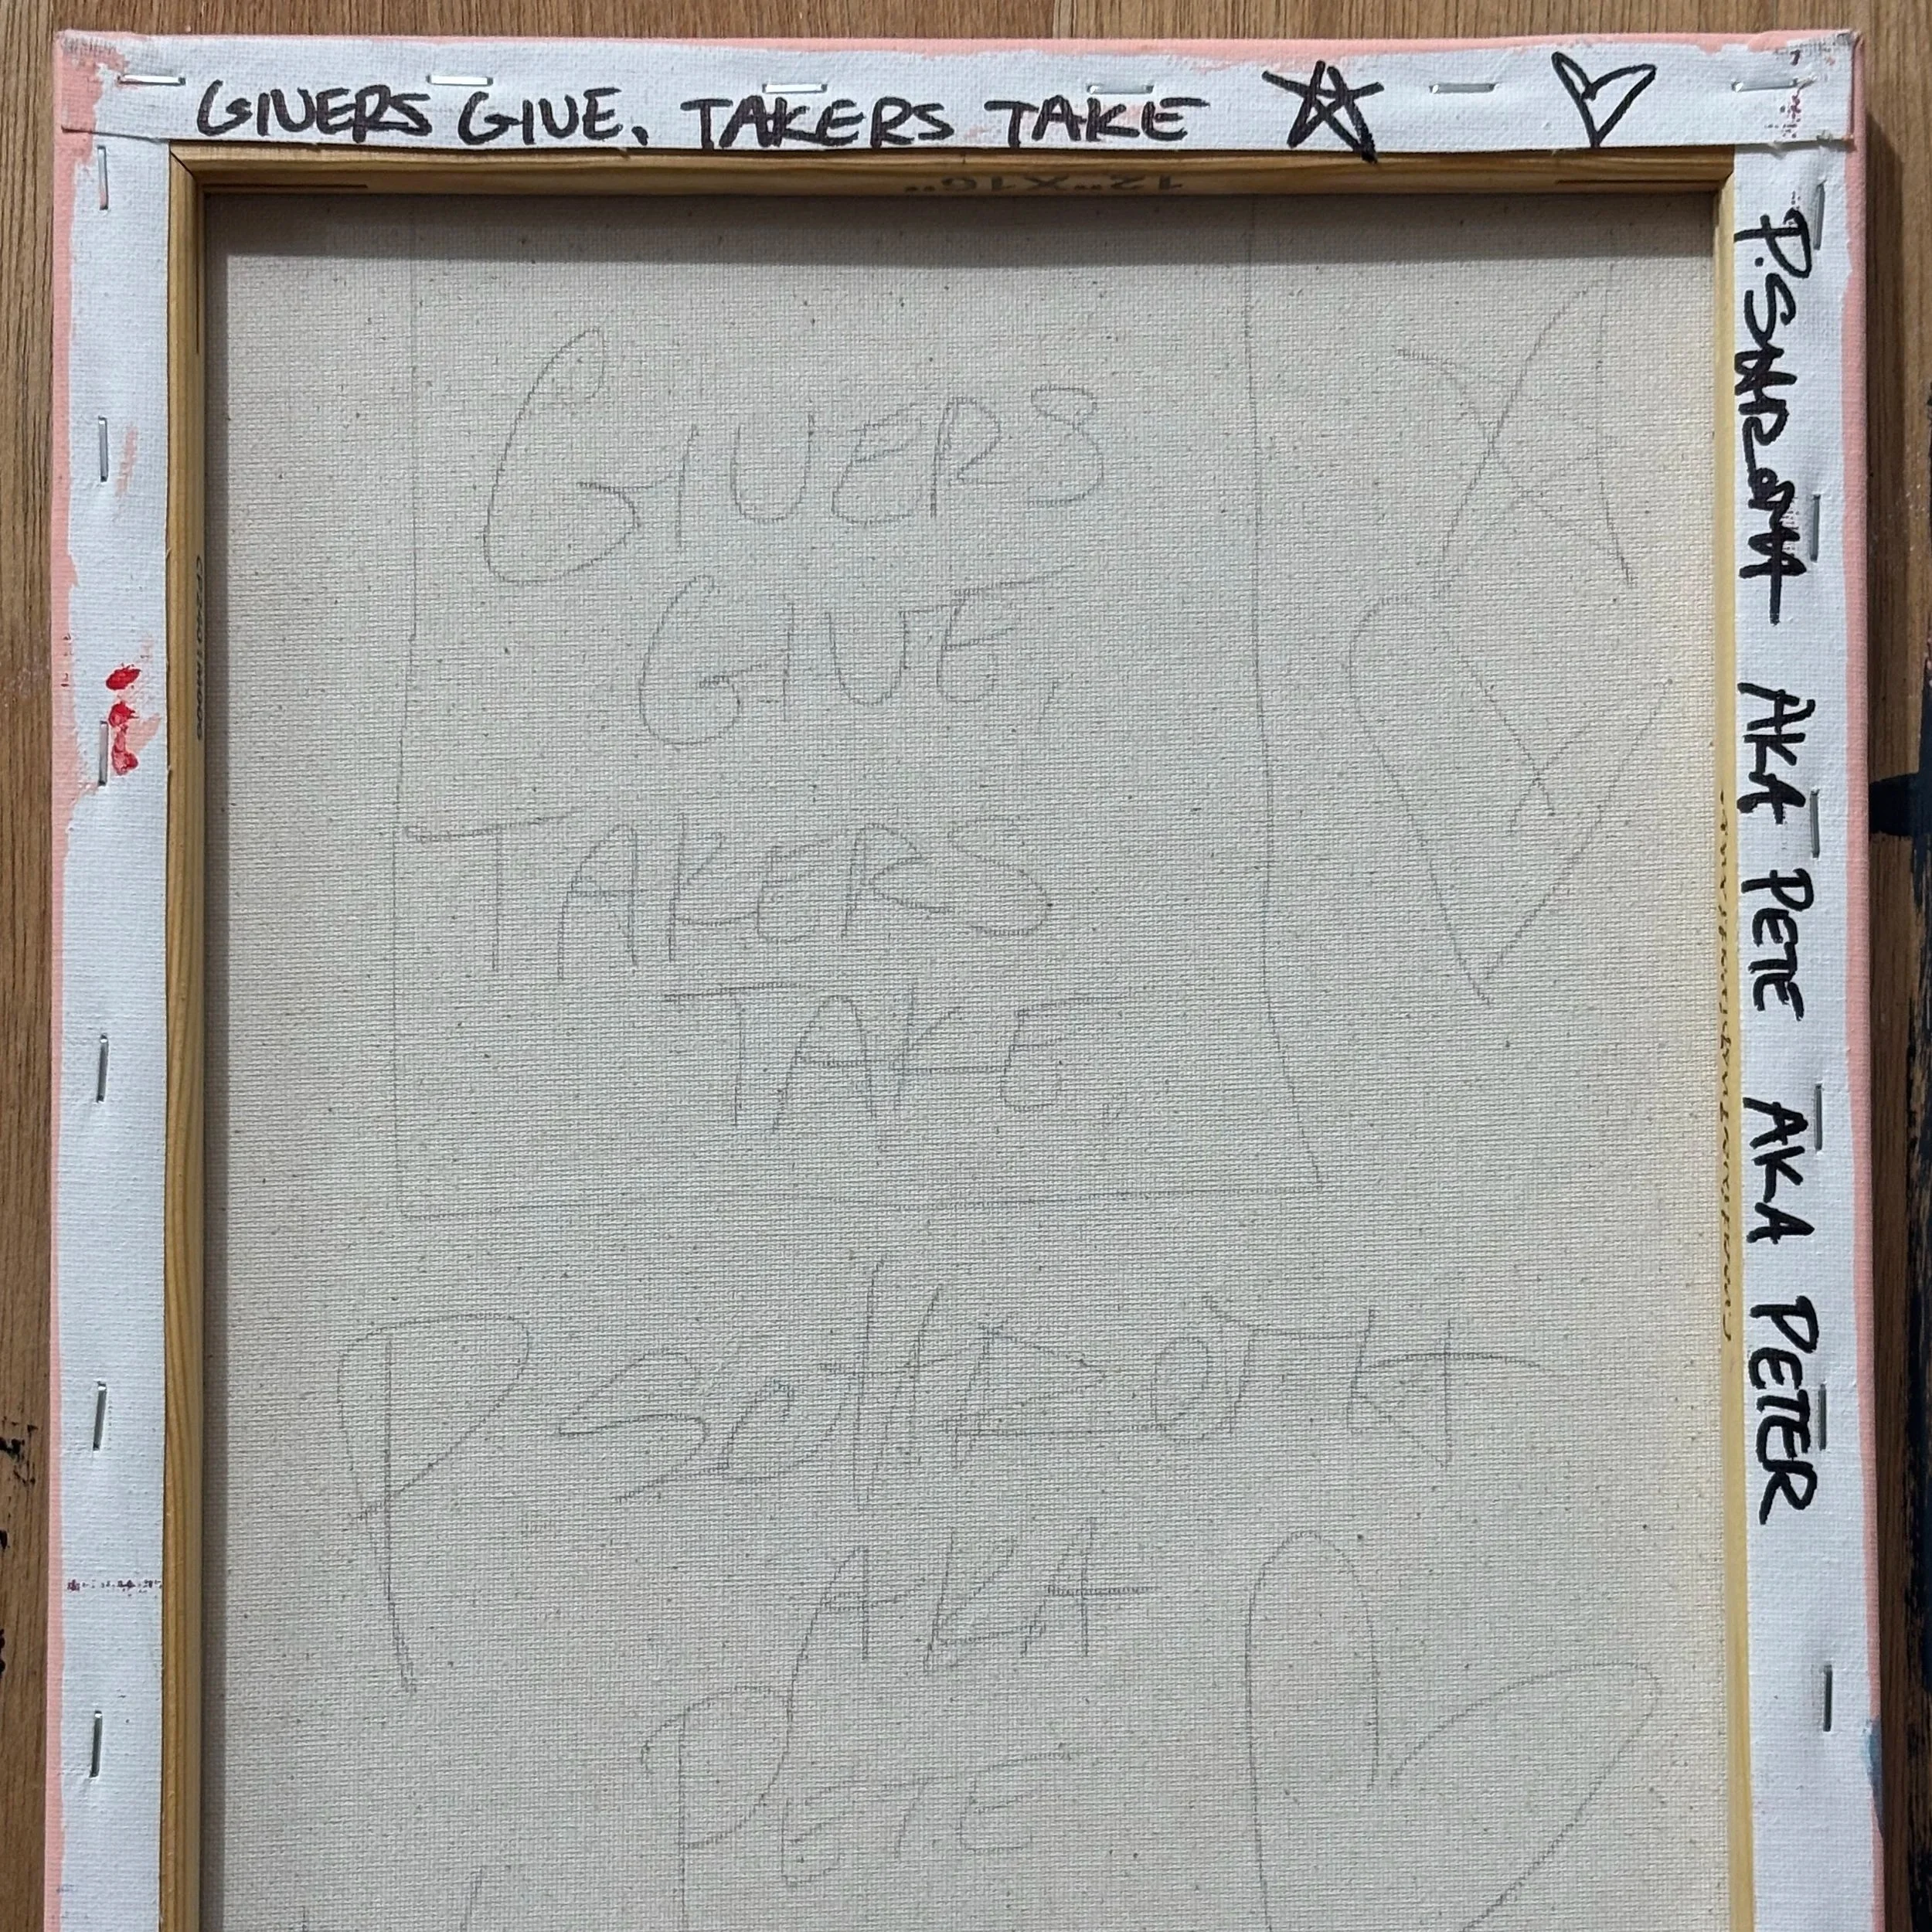 GIVERS GIVE. TAKERS TAKE
12"X16"
AKA PETE AKA PETER
GIVERS
GIVE,
TAKERS
TAKE,
AKA
PETE